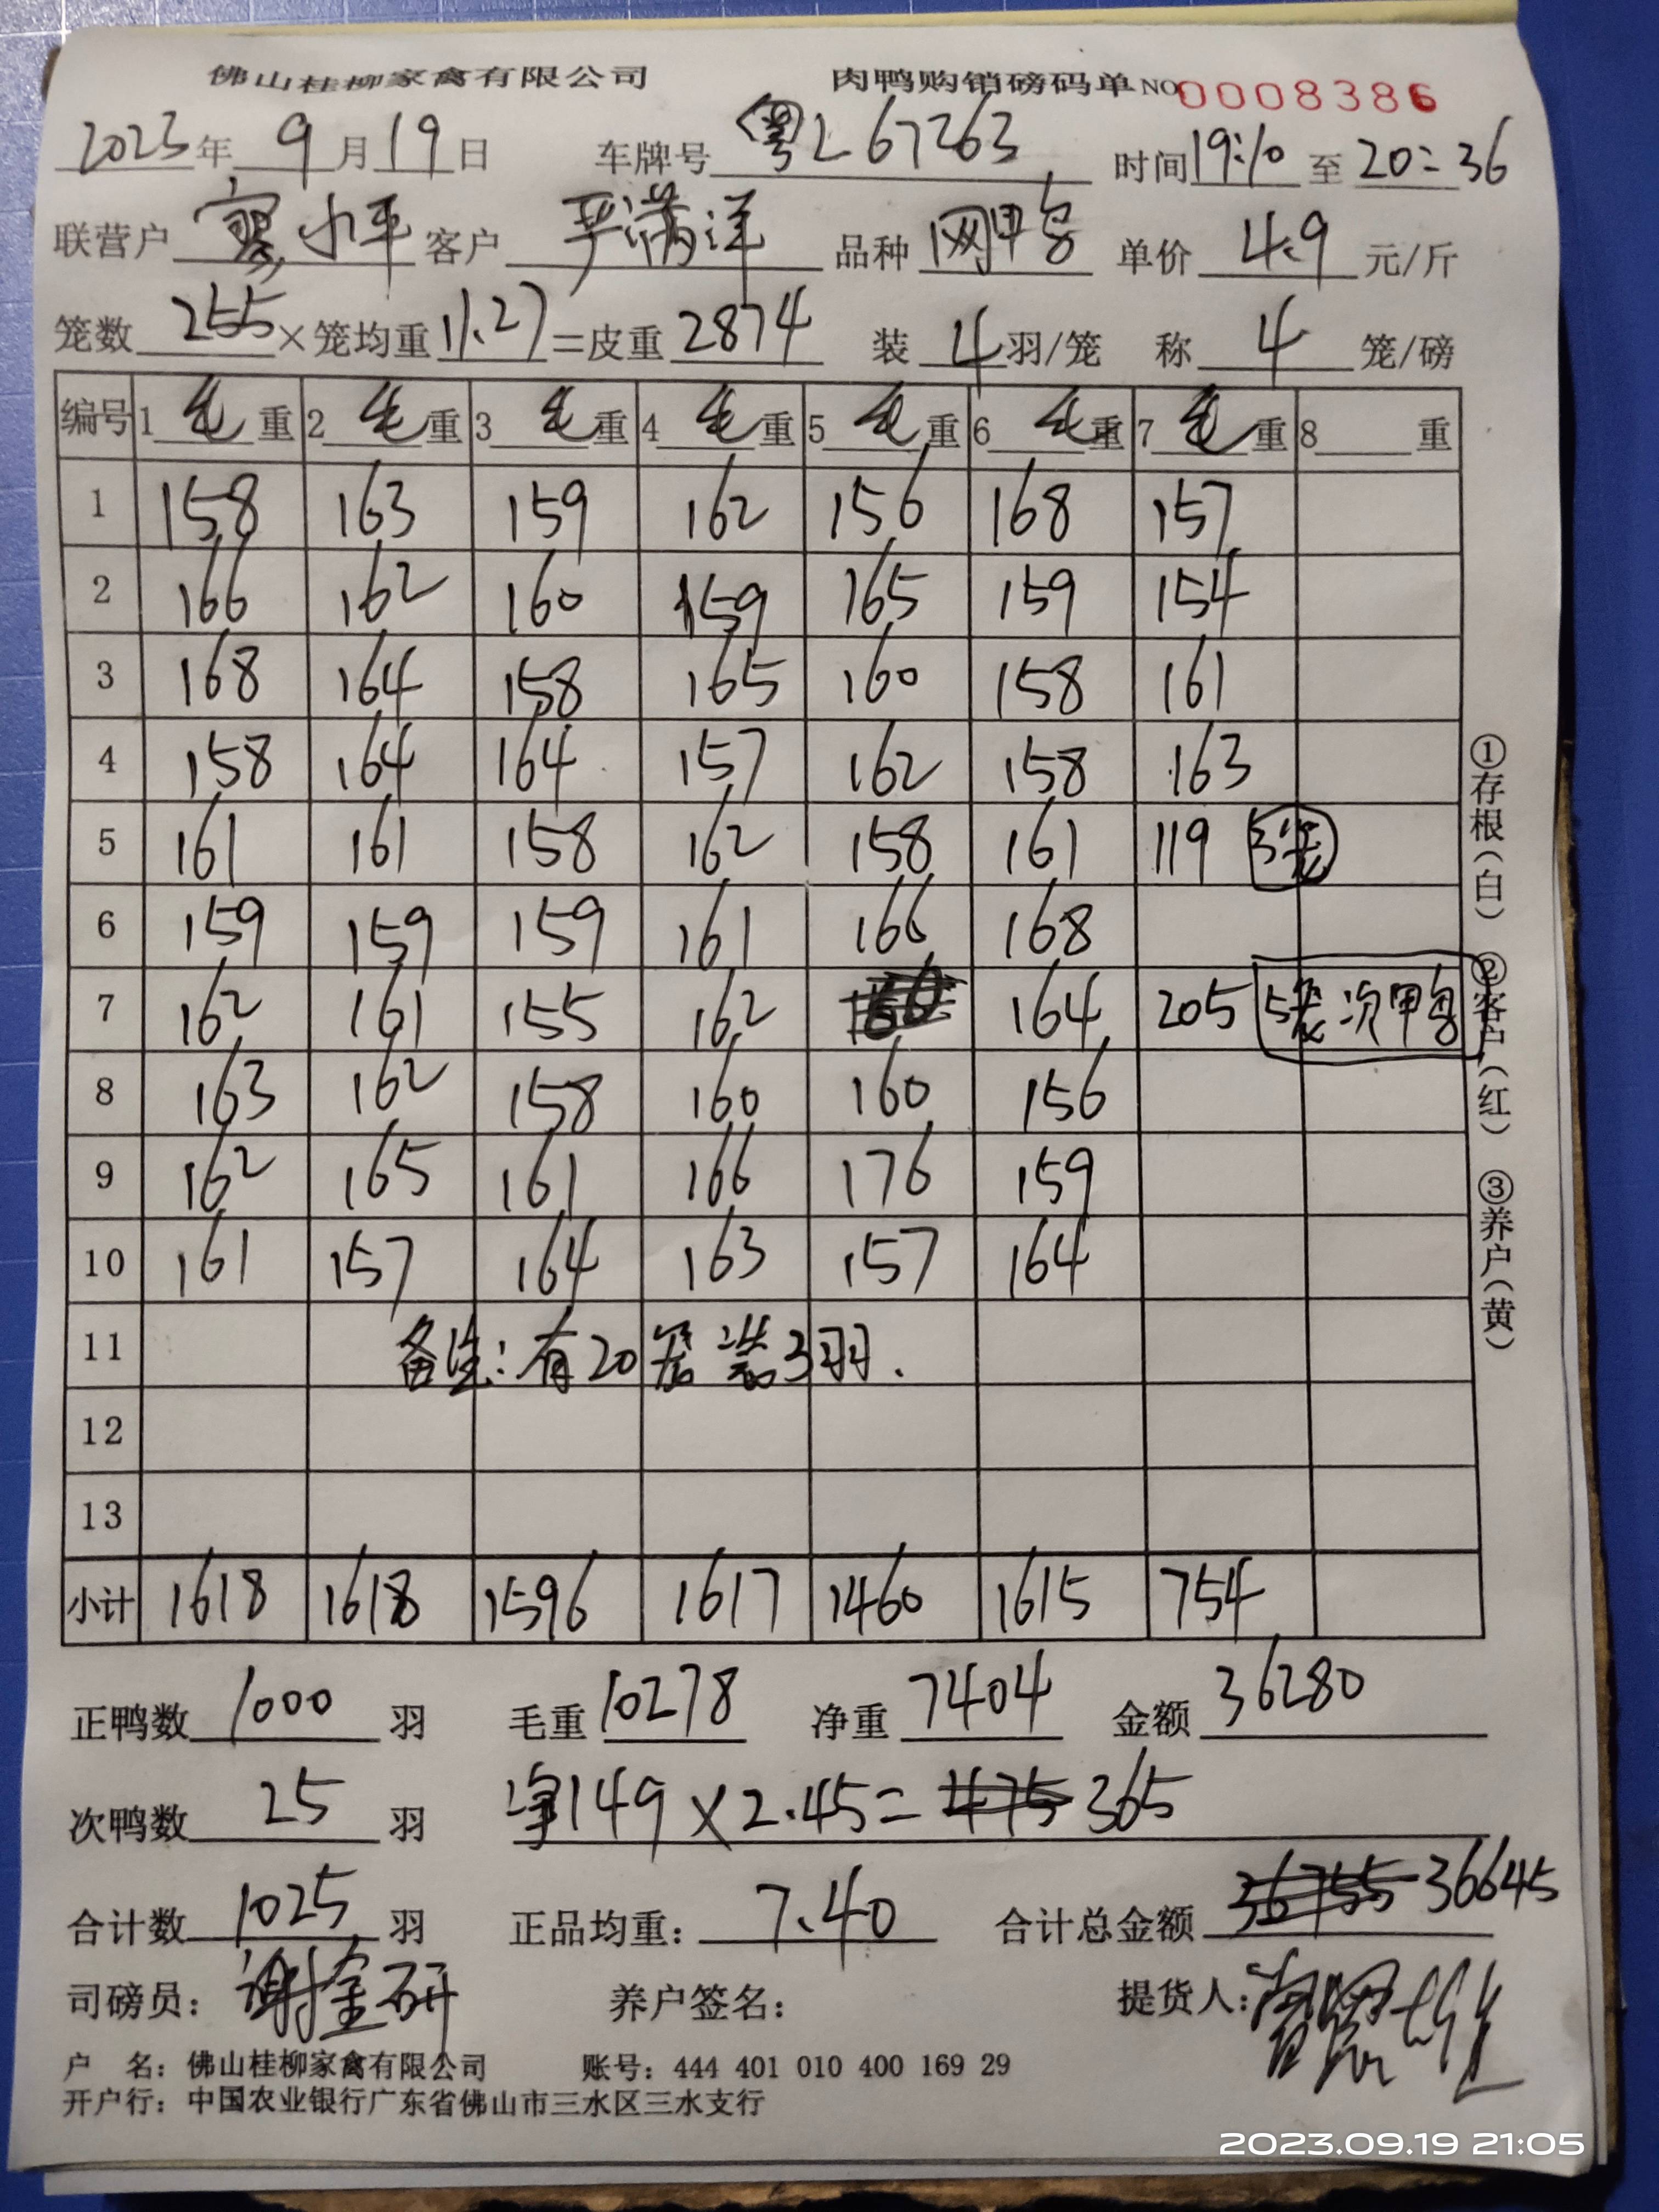 佛山桂柳家禽有限公司 肉鸭购销磅码单 NO 0008386
2023年 9月19日 车牌号 粤L67263 时间19:10至20:36
联营户 小平 客户 严满洋 品种 网甲鸟 单价 4.9 元/斤
笼数 255 ×笼均重 11.27 =皮重 2874 装 4 羽/笼 称 4 笼/磅
编号 1 毛 重 2 毛 重 3 毛 重 4 毛 重 5 毛 重 6 毛 重 7 毛 重 8 重
1 158 163 159 162 156 168 157
2 166 162 160 159 165 159 154
3 168 164 158 165 160 158 161
4 158 164 164 157 162 158 163
5 161 161 158 162 158 161 119 3笼
6 159 159 159 161 166 168
7 162 161 155 162 164 205 5笼 次甲鸟
8 163 162 158 160 160 156
9 162 165 161 166 176 159
10 161 157 164 163 157 164
11 备注:有20笼装3羽.
12
13
小计 1618 1618 1596 1617 1460 1615 754
①存根(白) ②客户(红) ③养户(黄)
正鸭数 1000 羽 毛重 10278 净重 7404 金额 36280
次鸭数 25 羽 净149×2.45= 475 365
合计数 1025 羽 正品均重: 7.40 合计总金额 36755 36645
司磅员: 谢金研 养户签名: 提货人:
户 名: 佛山桂柳家禽有限公司 账号: 444 401 010 400 169 29
开户行: 中国农业银行广东省佛山市三水区三水支行
2023.09.19 21:05